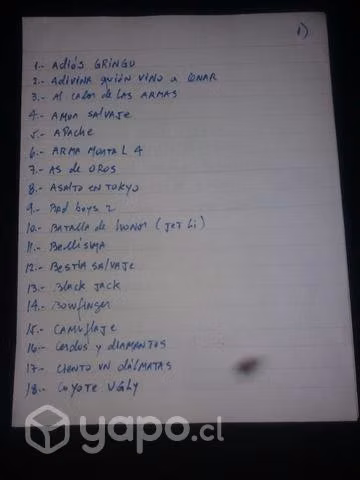 1)
1.- Adiós GRINGO
2.- ADIVINA quién vino a CENAR
3.- Al calor de LAS ARMAS
4.- AMOR SALVAJE
5.- APACHE
6.- ARMA MORTAL 4
7.- AS de OROS
8.- ASALTO EN TOKYO
9.- Bad boys 2
10.- BATALLA de honor (JET Li)
11.- Bellísima
12.- BESTIA SALVAJE
13.- Black Jack
14.- Bowfinger
15.- CAMUFLAJE
16.- Cerdos y DIAMANTES
17.- CIENTO UN DÁLMATAS
18.- COYOTE UGLY
yapo.cl